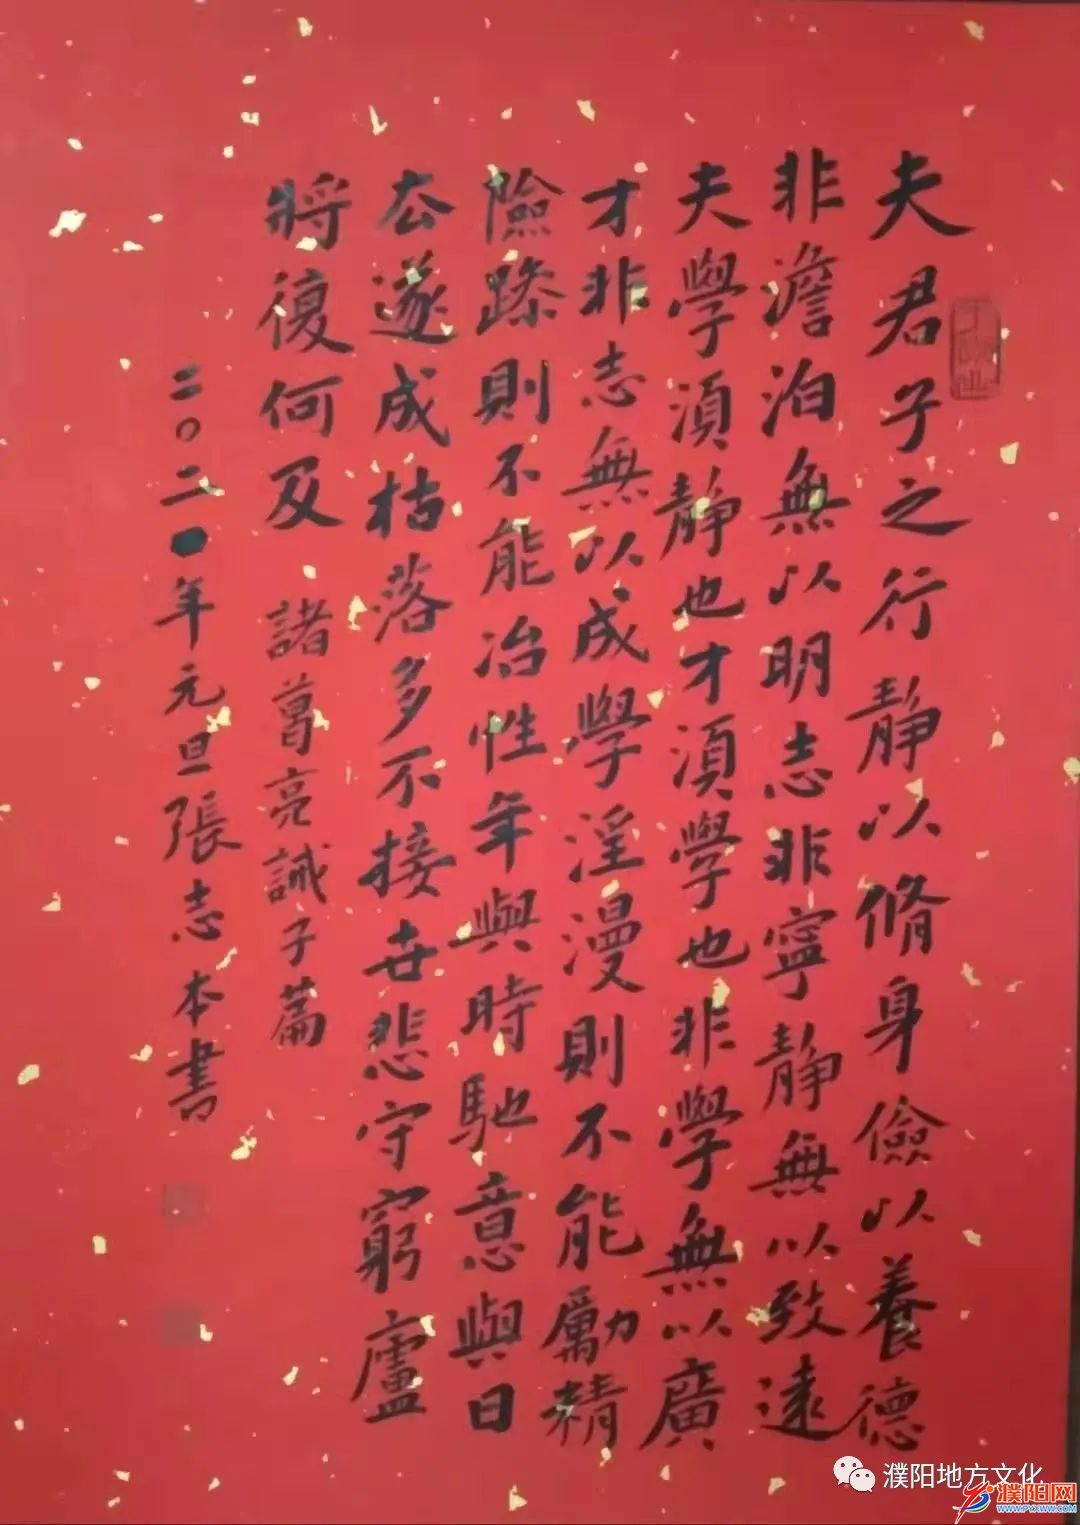 夫君子之行靜以脩身儉以養德
非澹泊無以明志非寧靜無以致遠
夫學須靜也才須學也非學無以廣
才非志無以成學淫漫則不能勵精
險躁則不能冶性年與時馳意與日
去遂成枯落多不接世悲守窮廬
將復何及 諸葛亮誡子篇
二〇二〇年元旦張志本書
濮阳地方文化
濮阳网
WWW.PYXWW.COM